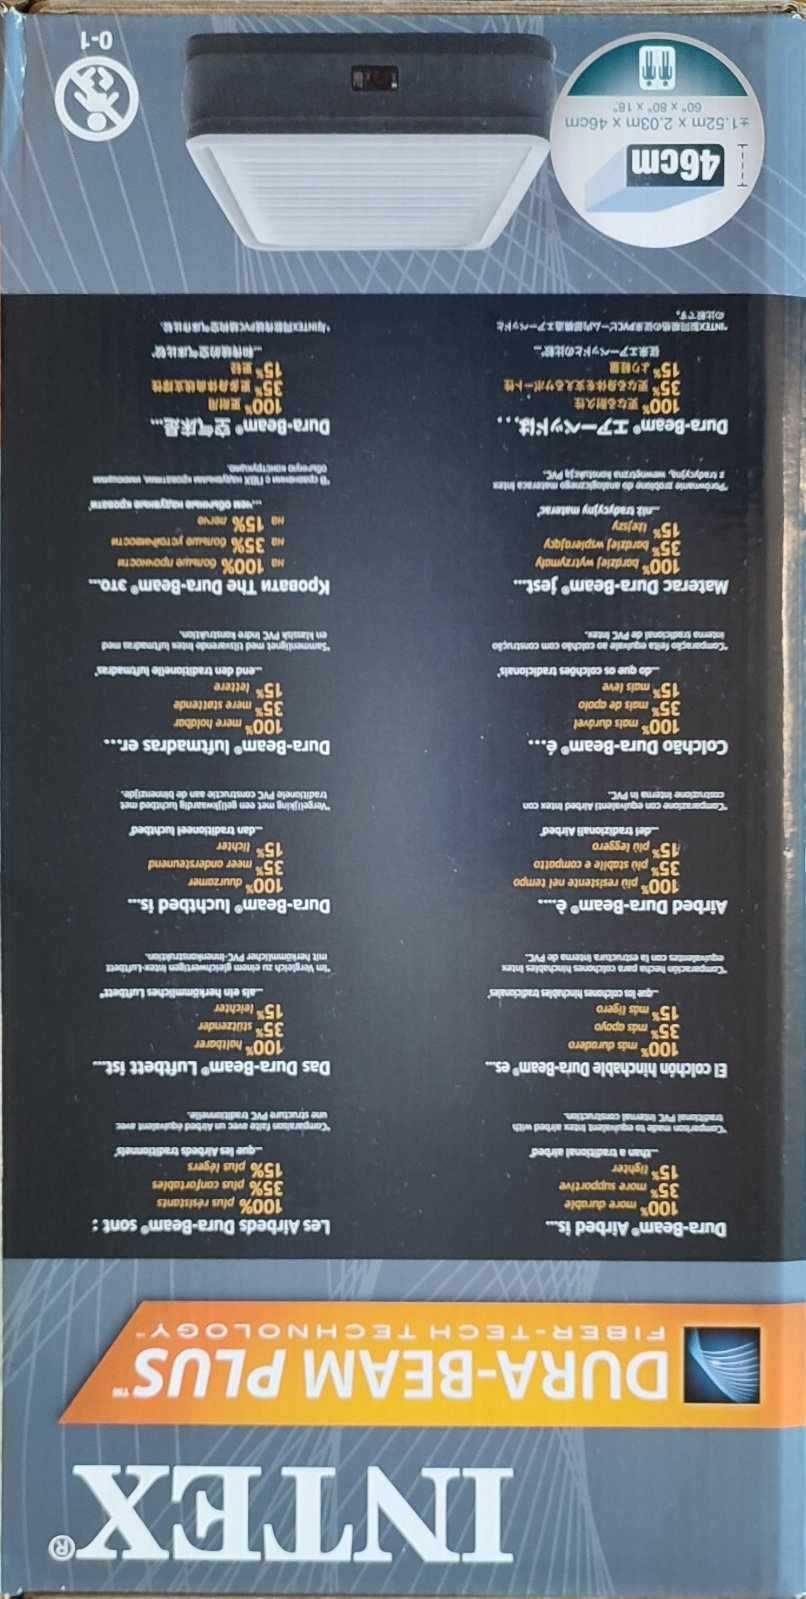 INTEX®
DURA-BEAM PLUS™
FIBER-TECH TECHNOLOGY™
Dura-Beam® Airbed is...
100% more durable
35% more supportive
15% lighter
...than a traditional airbed*
*Comparison made to equivalent Intex airbed with
traditional PVC internal construction.
Les Airbeds Dura-Beam® sont :
100% plus résistants
35% plus confortables
15% plus légers
...que les Airbeds traditionnels*
*Comparaison faite avec un Airbed équivalent avec
une structure PVC traditionnelle.
El colchón hinchable Dura-Beam® es...
100% más duradero
35% más apoyo
15% más ligero
...que los colchones hinchables tradicionales*
*Comparación hecha para colchones hinchables Intex
equivalentes con la estructura interna de PVC.
Das Dura-Beam® Luftbett ist...
100% haltbarer
35% stützender
15% leichter
...als ein herkömmliches Luftbett*
*Im Vergleich zu einem gleichwertigen Intex-Luftbett
mit herkömmlicher PVC-Innenkonstruktion.
Airbed Dura-Beam® è....
100% più resistente nel tempo
35% più stabile e compatto
15% più leggero
...dei tradizionali Airbed*
*Comparazione con equivalenti Airbed Intex con
costruzione interna in PVC.
Dura-Beam® luchtbed is...
100% duurzamer
35% meer ondersteunend
15% lichter
...dan traditioneel luchtbed*
*Vergelijking met een gelijkwaardig luchtbed met
traditionele PVC constructie aan de binnenzijde.
Colchão Dura-Beam® é...
100% mais durável
35% mais de apoio
15% mais leve
...do que os colchões tradicionais*
*Comparação feita equivale ao colchão com construção
interna tradicional de PVC Intex.
Dura-Beam® luftmadras er....
100% mere holdbar
35% mere støttende
15% lettere
...end den traditionelle luftmadras*
*Sammenlignet med tilsvarende Intex luftmadras med
en klassisk PVC indre konstruktion.
Materac Dura-Beam® jest...
100% bardziej wytrzymały
35% bardziej wspierający
15% lżejszy
...niż tradycyjny materac*
*Porównanie zrobione do analogicznego materaca Intex
z tradycyjną, wewnętrzna konstrukcją PVC.
Кровати The Dura-Beam® это...
на 100% больше прочности
на 35% больше устойчивости
на 15% легче
...чем обычные надувные кровати*
*В сравнении с ПВХ надувными кроватями, имеющими
обычную конструкцию.
Dura-Beam® エアーベッドは...
100% 更なる耐久性
35% 更なる身体を支えるサポート性
15% より軽量
従来エアーベッドとの比較*...
*INTEX製同規格の従来PVCビーム内部構造エアーベッドと
の比較です。
Dura-Beam® 空气床是...
100% 更耐用
35% 更多身体曲线支撑性
15% 更轻
...和传统的空气床比较*
*与INTEX同款传统PVC结构空气床作比较.
46cm
±1.52m x 2.03m x 46cm
60" x 80" x 18"
0-1